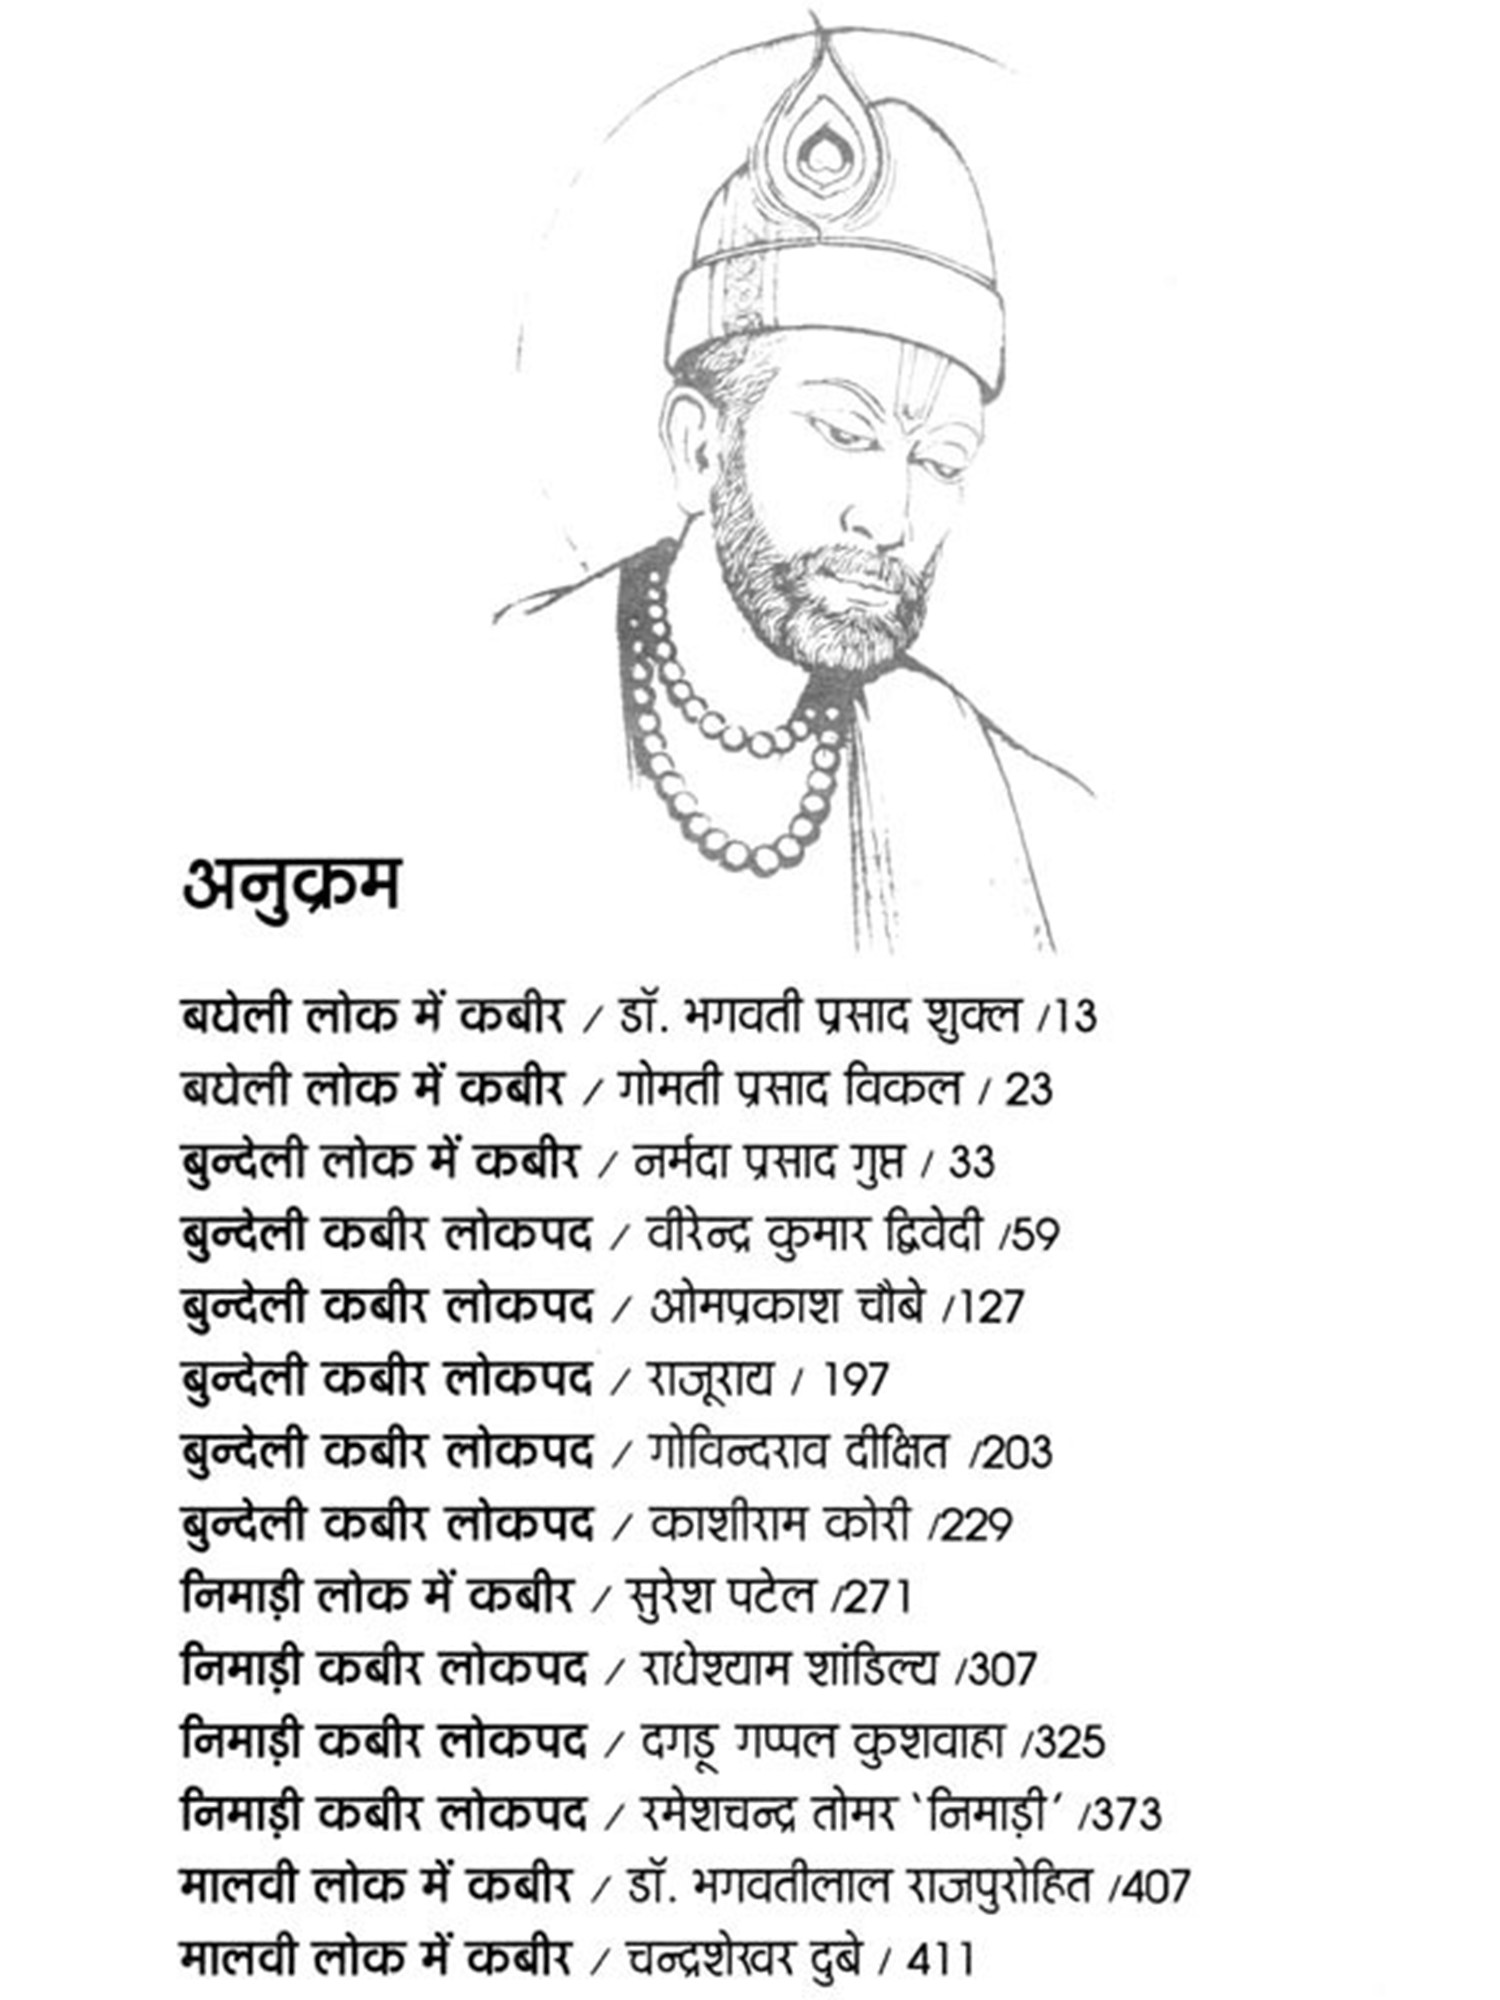 अनुक्रम
बघेली लोक में कबीर / डॉ. भगवती प्रसाद शुक्ल /13
बघेली लोक में कबीर / गोमती प्रसाद विकल / 23
बुन्देली लोक में कबीर / नर्मदा प्रसाद गुप्त / 33
बुन्देली कबीर लोकपद / वीरेन्द्र कुमार द्विवेदी /59
बुन्देली कबीर लोकपद / ओमप्रकाश चौबे /127
बुन्देली कबीर लोकपद / राजूराय / 197
बुन्देली कबीर लोकपद / गोविन्दराव दीक्षित /203
बुन्देली कबीर लोकपद / काशीराम कोरी /229
निमाड़ी लोक में कबीर / सुरेश पटेल /271
निमाड़ी कबीर लोकपद / राधेश्याम शांडिल्य /307
निमाड़ी कबीर लोकपद / दगड़ू गप्पल कुशवाहा /325
निमाड़ी कबीर लोकपद / रमेशचन्द्र तोमर `निमाड़ी´ /373
मालवी लोक में कबीर / डॉ. भगवतीलाल राजपुरोहित /407
मालवी लोक में कबीर / चन्द्रशेखर दुबे / 411